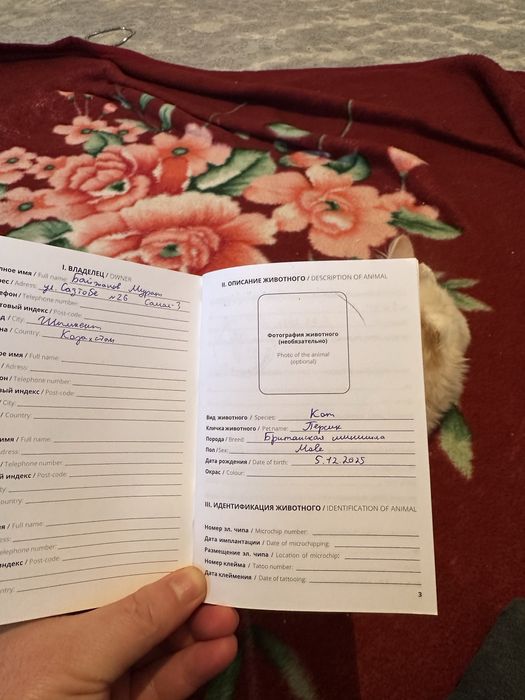 I. ВЛАДЕЛЕЦ / OWNER
лное имя / Full name: Байжанов Мурат
рес / Adress: ул. Сазтобе №26 Самал-3
ефон / Telephone number:
товый индекс / Post-code:
д / City: Шымкент
на / Country: Казахстан
ое имя / Full name:
/ Adress:
он / Telephone number:
вый индекс / Post-code:
/ City:
/ Country:
имя / Full name:
dress:
/ Telephone number:
индекс / Post-code:
ty:
ountry:
я / Full name:
ess:
elephone number:
ндекс / Post-code:
ntry:
II. ОПИСАНИЕ ЖИВОТНОГО / DESCRIPTION OF ANIMAL
Фотография животного
(необязательно)
Photo of the animal
(optional)
Вид животного / Species: Кот
Кличка животного / Pet name: Персик
Порода / Breed: Британская шиншилла
Пол / Sex: Male
Дата рождения / Date of birth: 5.12.2025
Окрас / Colour:
III. ИДЕНТИФИКАЦИЯ ЖИВОТНОГО / IDENTIFICATION OF ANIMAL
Номер эл. чипа / Microchip number:
Дата имплантации / Date of microchipping:
Размещение эл. чипа / Location of microchip:
Номер клейма / Tatoo number:
Дата клеймения / Date of tattooing:
3